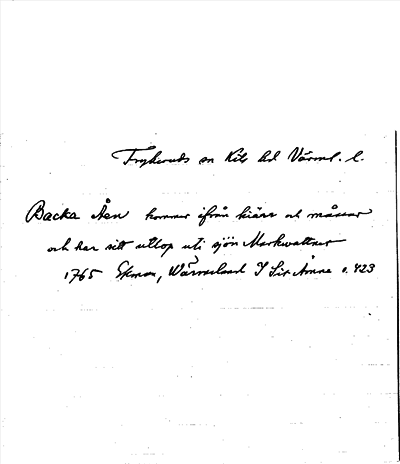 Frykeruds sn Kils hd Värml. l.
Backa Åen kommer ifrån kiärr och måssar
och har sitt utlop uti sjön Markwattnet
1765 Ekman, Wärmeland I S:ie Ämne s. 423